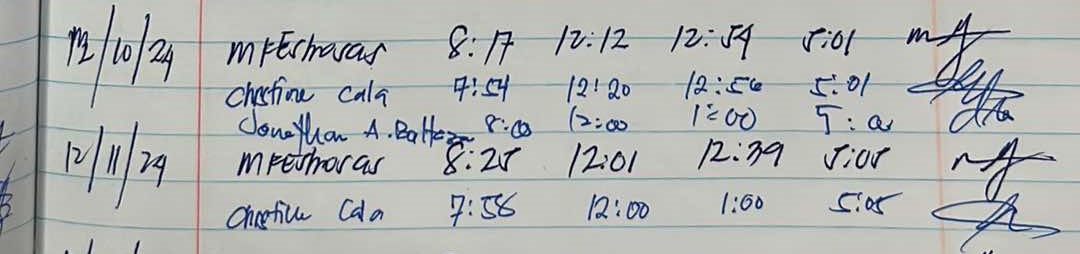 12/10/24 MFEstioras 8:17 12:12 12:54 5:01
Christine Cala 7:54 12:20 12:56 5:01
Jonathan A. 8:00 12:00 1:00 5:00
12/11/24 MFEstioras 8:25 12:01 12:39 5:05
Christine Cala 7:58 12:00 1:00 5:05